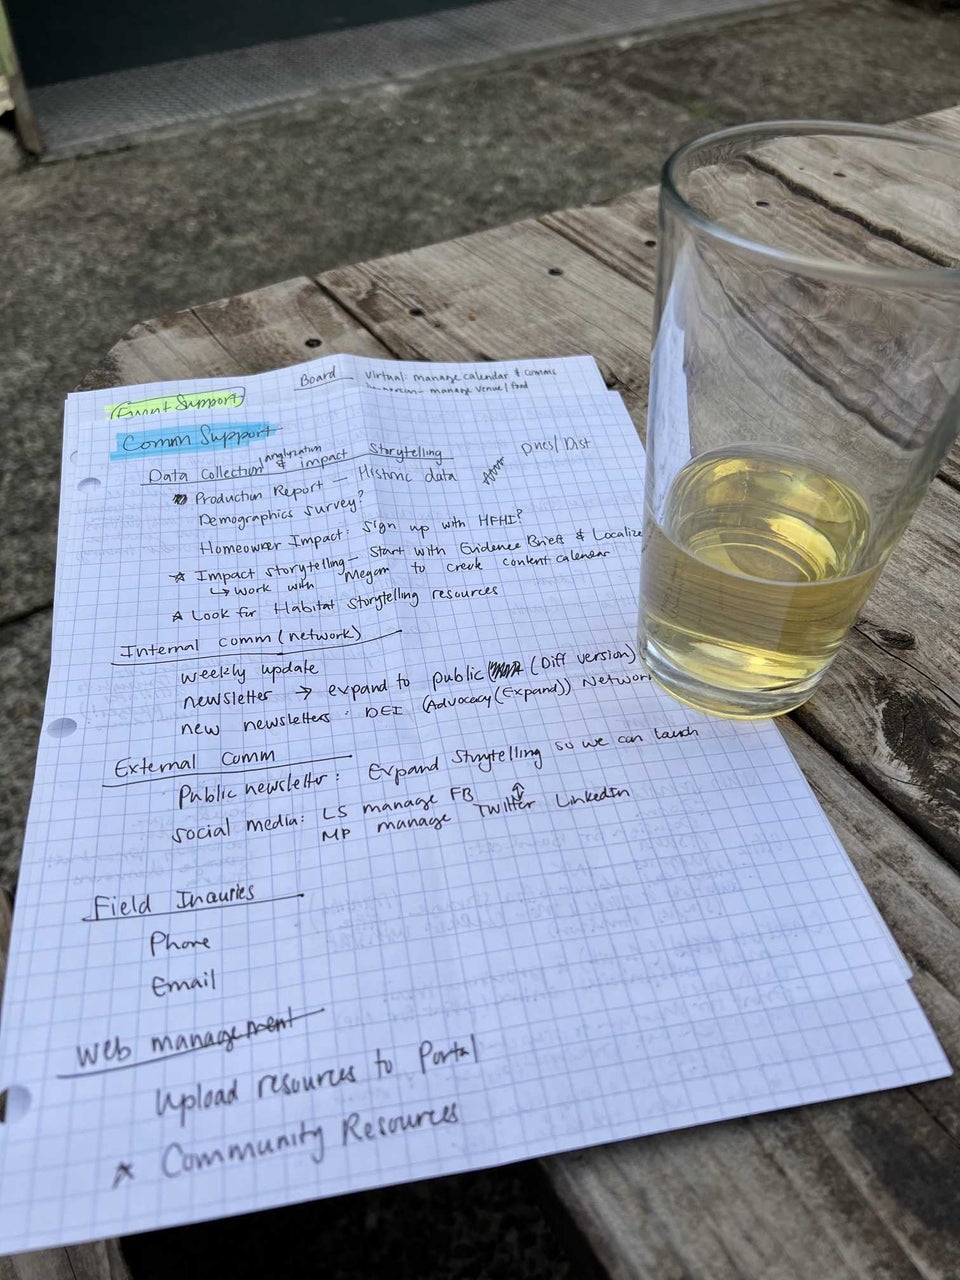 Board virtual: manage calendar & comms
manage venue/food
Support
Comm Support
Data Collection & impact Storytelling
Production Report — Historic data
Demographics survey?
Homeowner Impact: sign up with HFHI?
Impact storytelling — Start with Evidence Briefs & Localize
↳ work with Megan to creat content calendar
Look for Habitat storytelling resources
Internal comm (network)
weekly update
newsletter → expand to public (Diff version)
new newsletters. DEI (Advocacy (Expand)) Network
External Comm
Public newsletter: Expand Storytelling so we can launch
social media: LS manage FB
MP manage Twitter LinkedIn
Field Inquries
Phone
Email
Web management
Upload resources to Portal
Community Resources